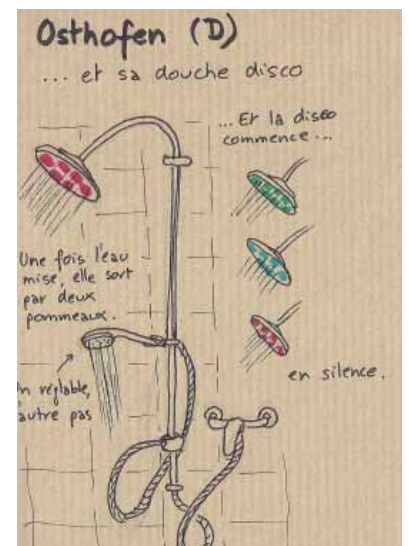 Osthofen (D)
... et sa douche disco
... Et la disco
commence ...
Une fois l'eau
mise, elle sort
par deux
pommeaux.
n réglable,
autre pas
en silence.